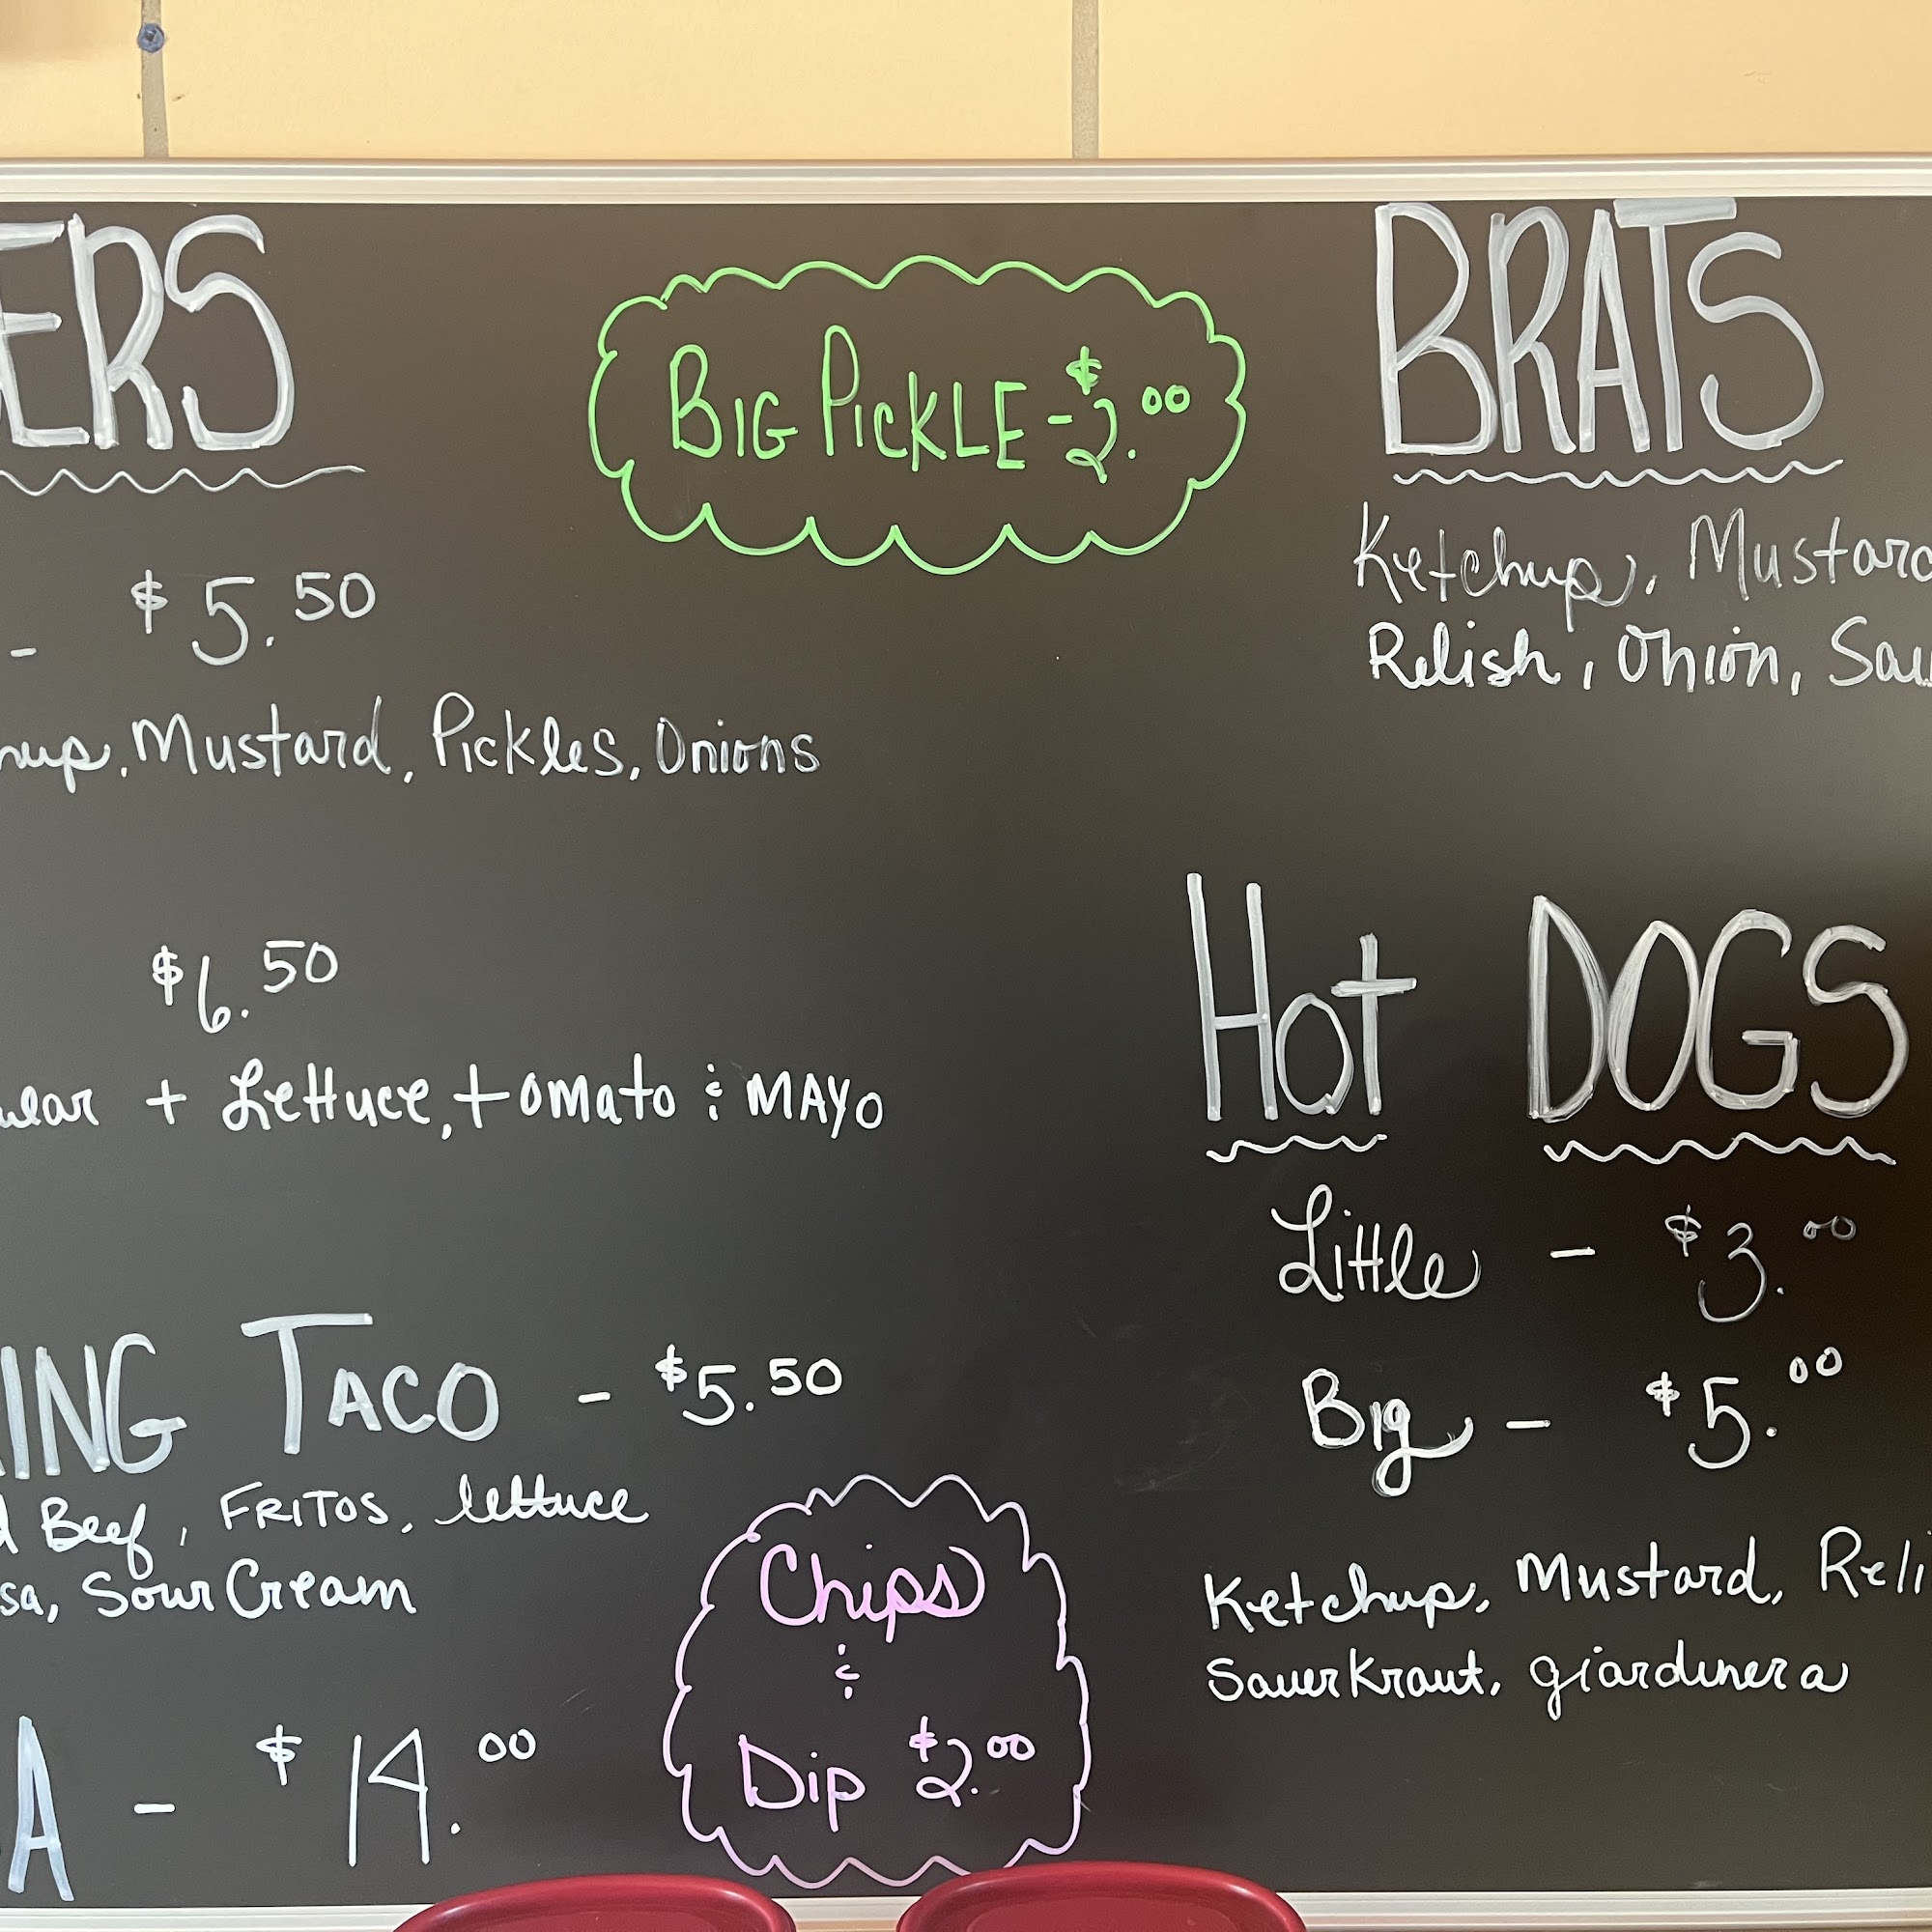 ERS
- $5.50
hup, Mustard, Pickles, Onions
$6.50
ular + Lettuce, tomato & MAYO
ING TACO - $5.50
d Beef, FRITOS, lettuce
sa, Sour Cream
A - $14.00
BIG PICKLE - $2.00
Chips
&
Dip $2.00
BRATS
Ketchup, Mustard
Relish, Onion, Sau
Hot DOGS
Little - $3.00
Big - $5.00
Ketchup, Mustard, Reli
Sauerkraut, giardinera